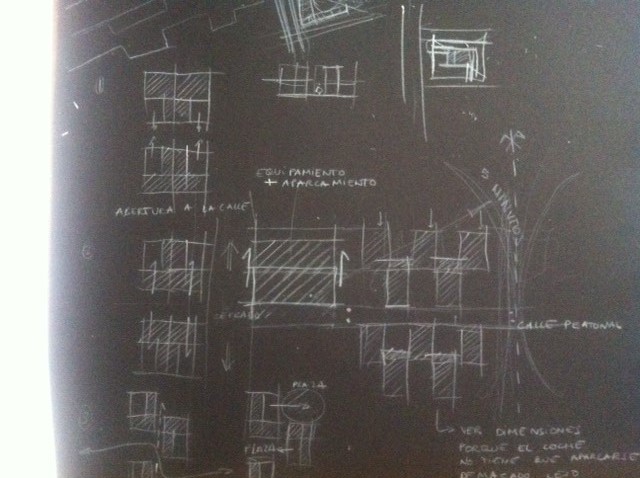 EQUIPAMIENTO
+ APARCAMIENTO
ABERTURA A LA CALLE
5 MINUTOS
CALLE PEATONAL
PLAZA
PLAZA
VER DIMENSIONES
PORQUE EL COCHE
NO TIENE QUE APARCARSE
DEMASADO LEJO